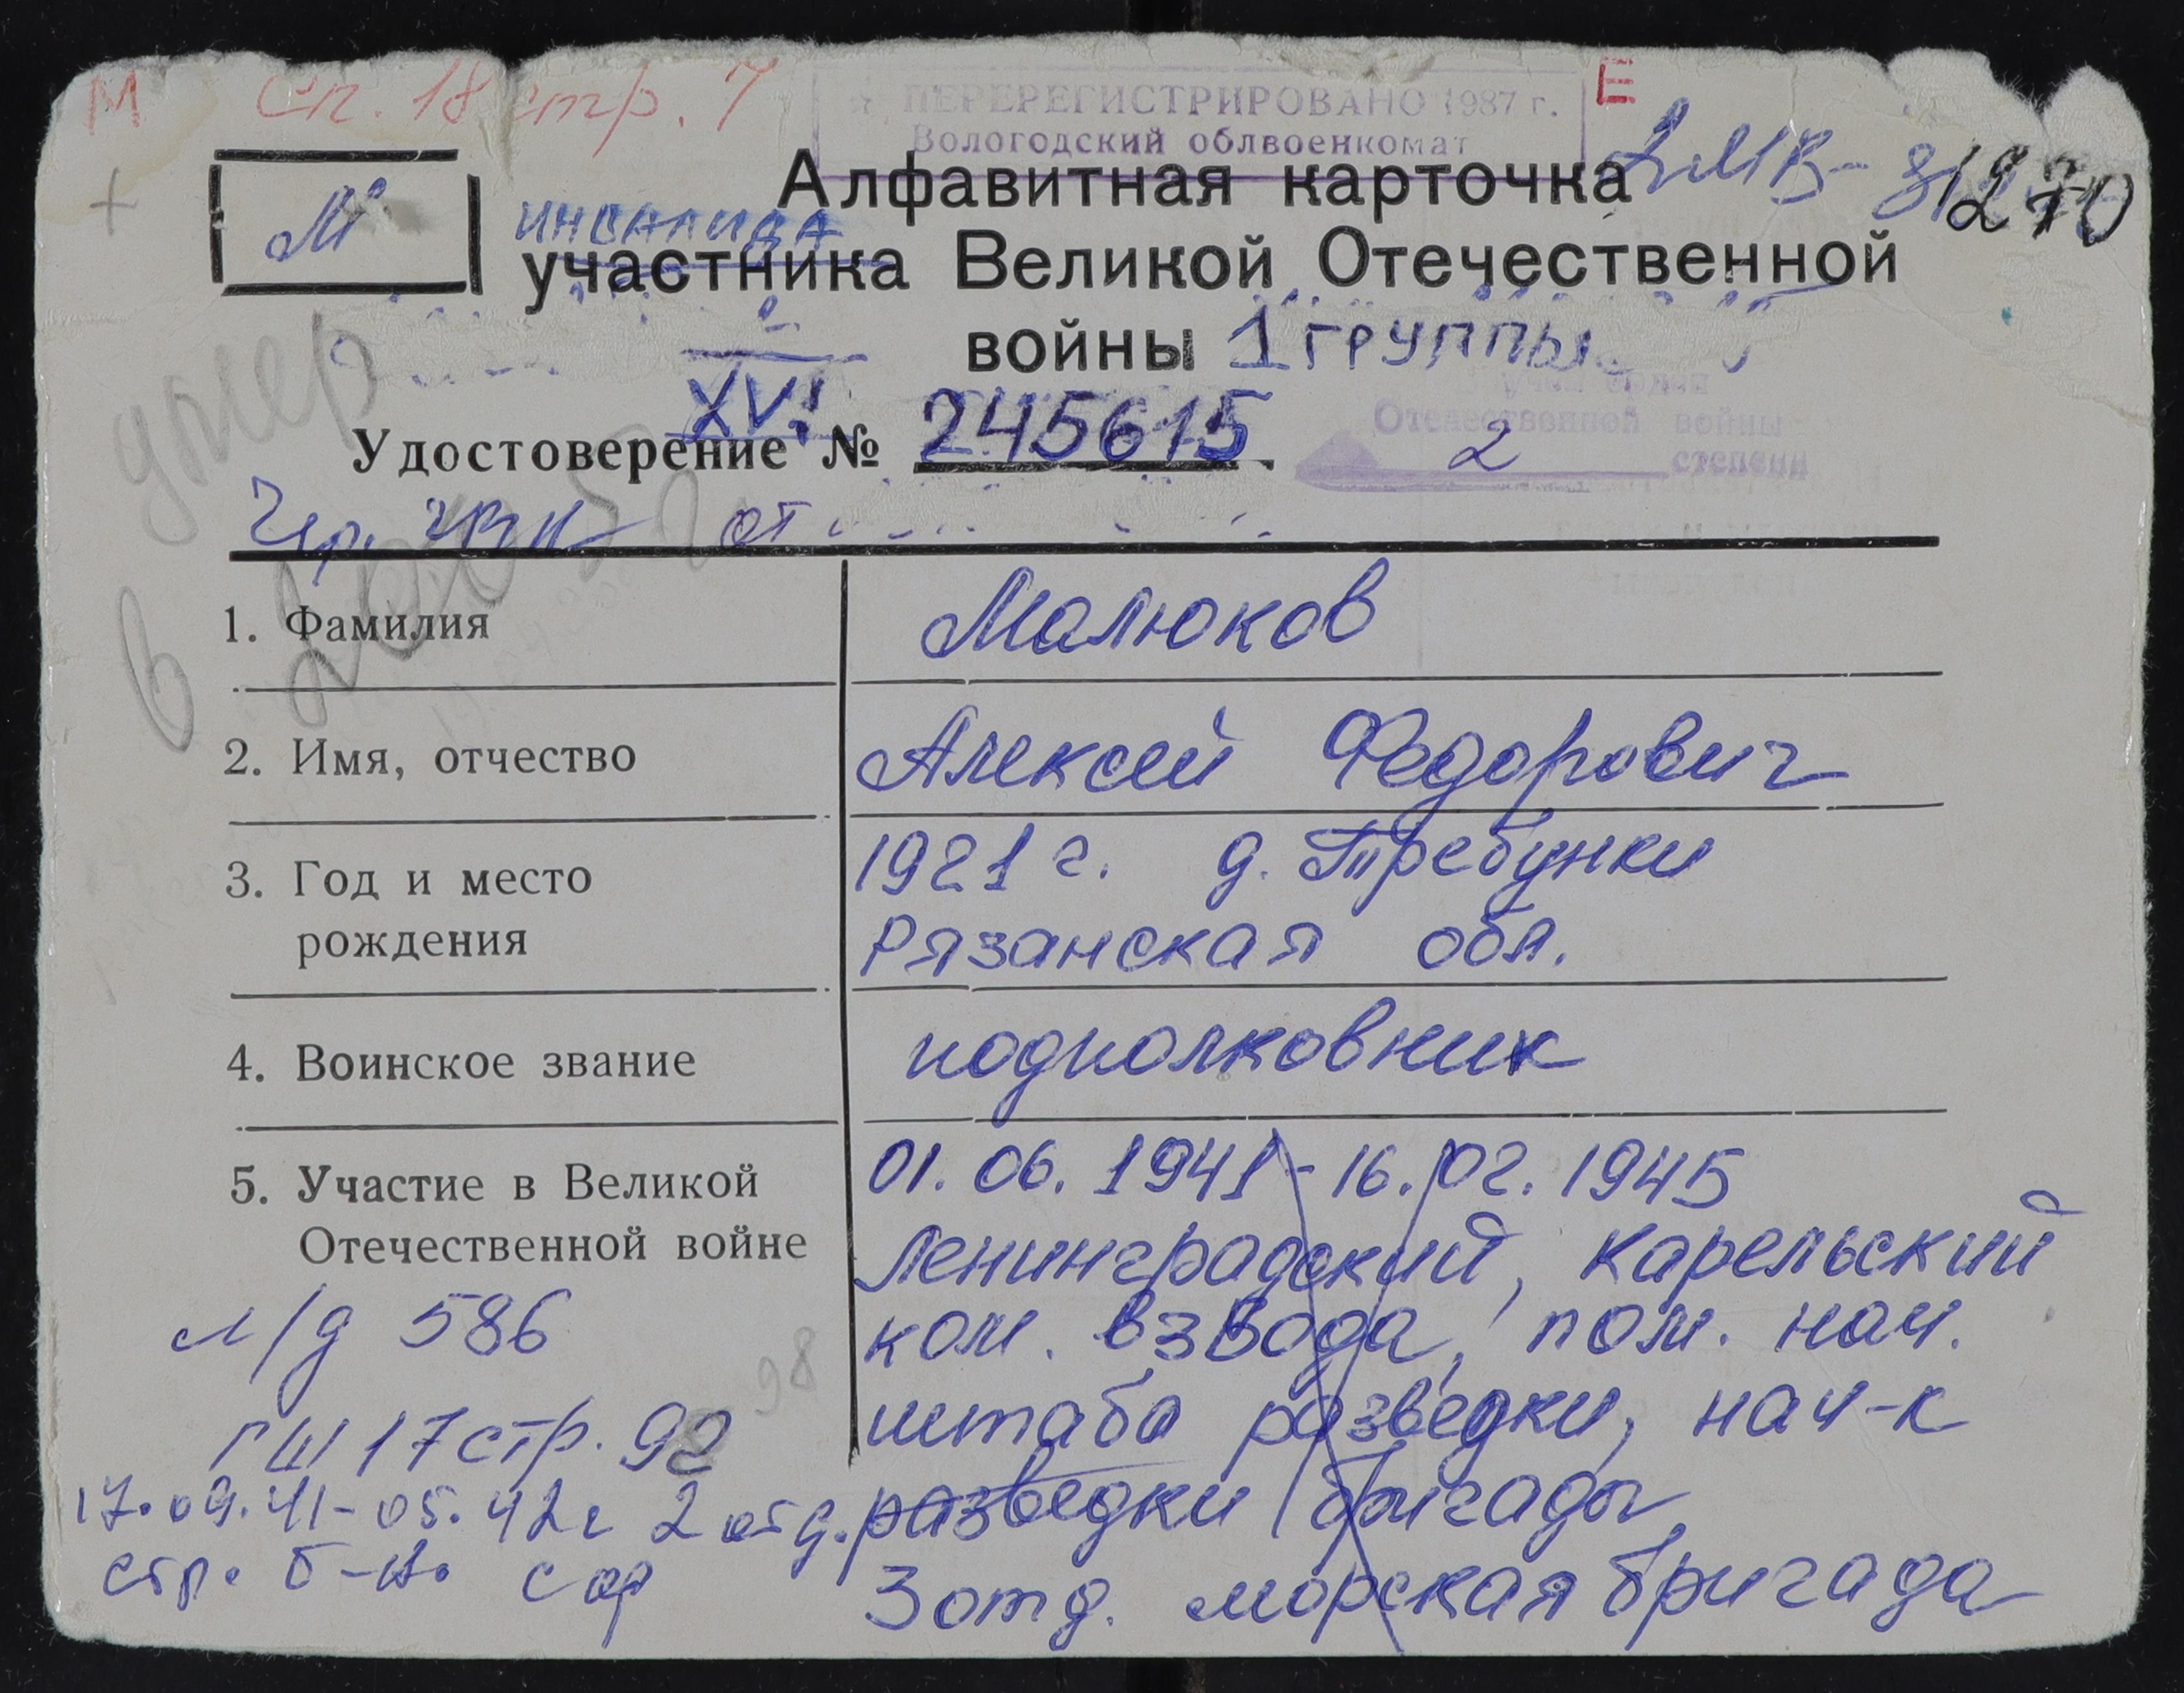 М сп. 18 стр. 7
ПЕРЕРЕГИСТРИРОВАНО 1987 г.
Е
Вологодский облвоенкомат
М
Алфавитная карточка
инвалида
участника Великой Отечественной
войны 1 группы
умер
XVI
Удостоверение № 245615
Отечественной войны
2 степени
от
в
1. Фамилия Малюков
2. Имя, отчество Алексей Федорович
3. Год и место 1921 г. д. Требунки
рождения Рязанская обл.
4. Воинское звание подполковник
5. Участие в Великой 01.06.1941-16.02.1945
Отечественной войне Ленинградский, Карельский
л/д 586 ком. взвода, пом. нач.
98
ГШ 17 стр. 92 штаба разведки, нач-к
17.09.41-05.42г 2 отд. разведки бригады
стр. б-н. 3 отд. морская бригада